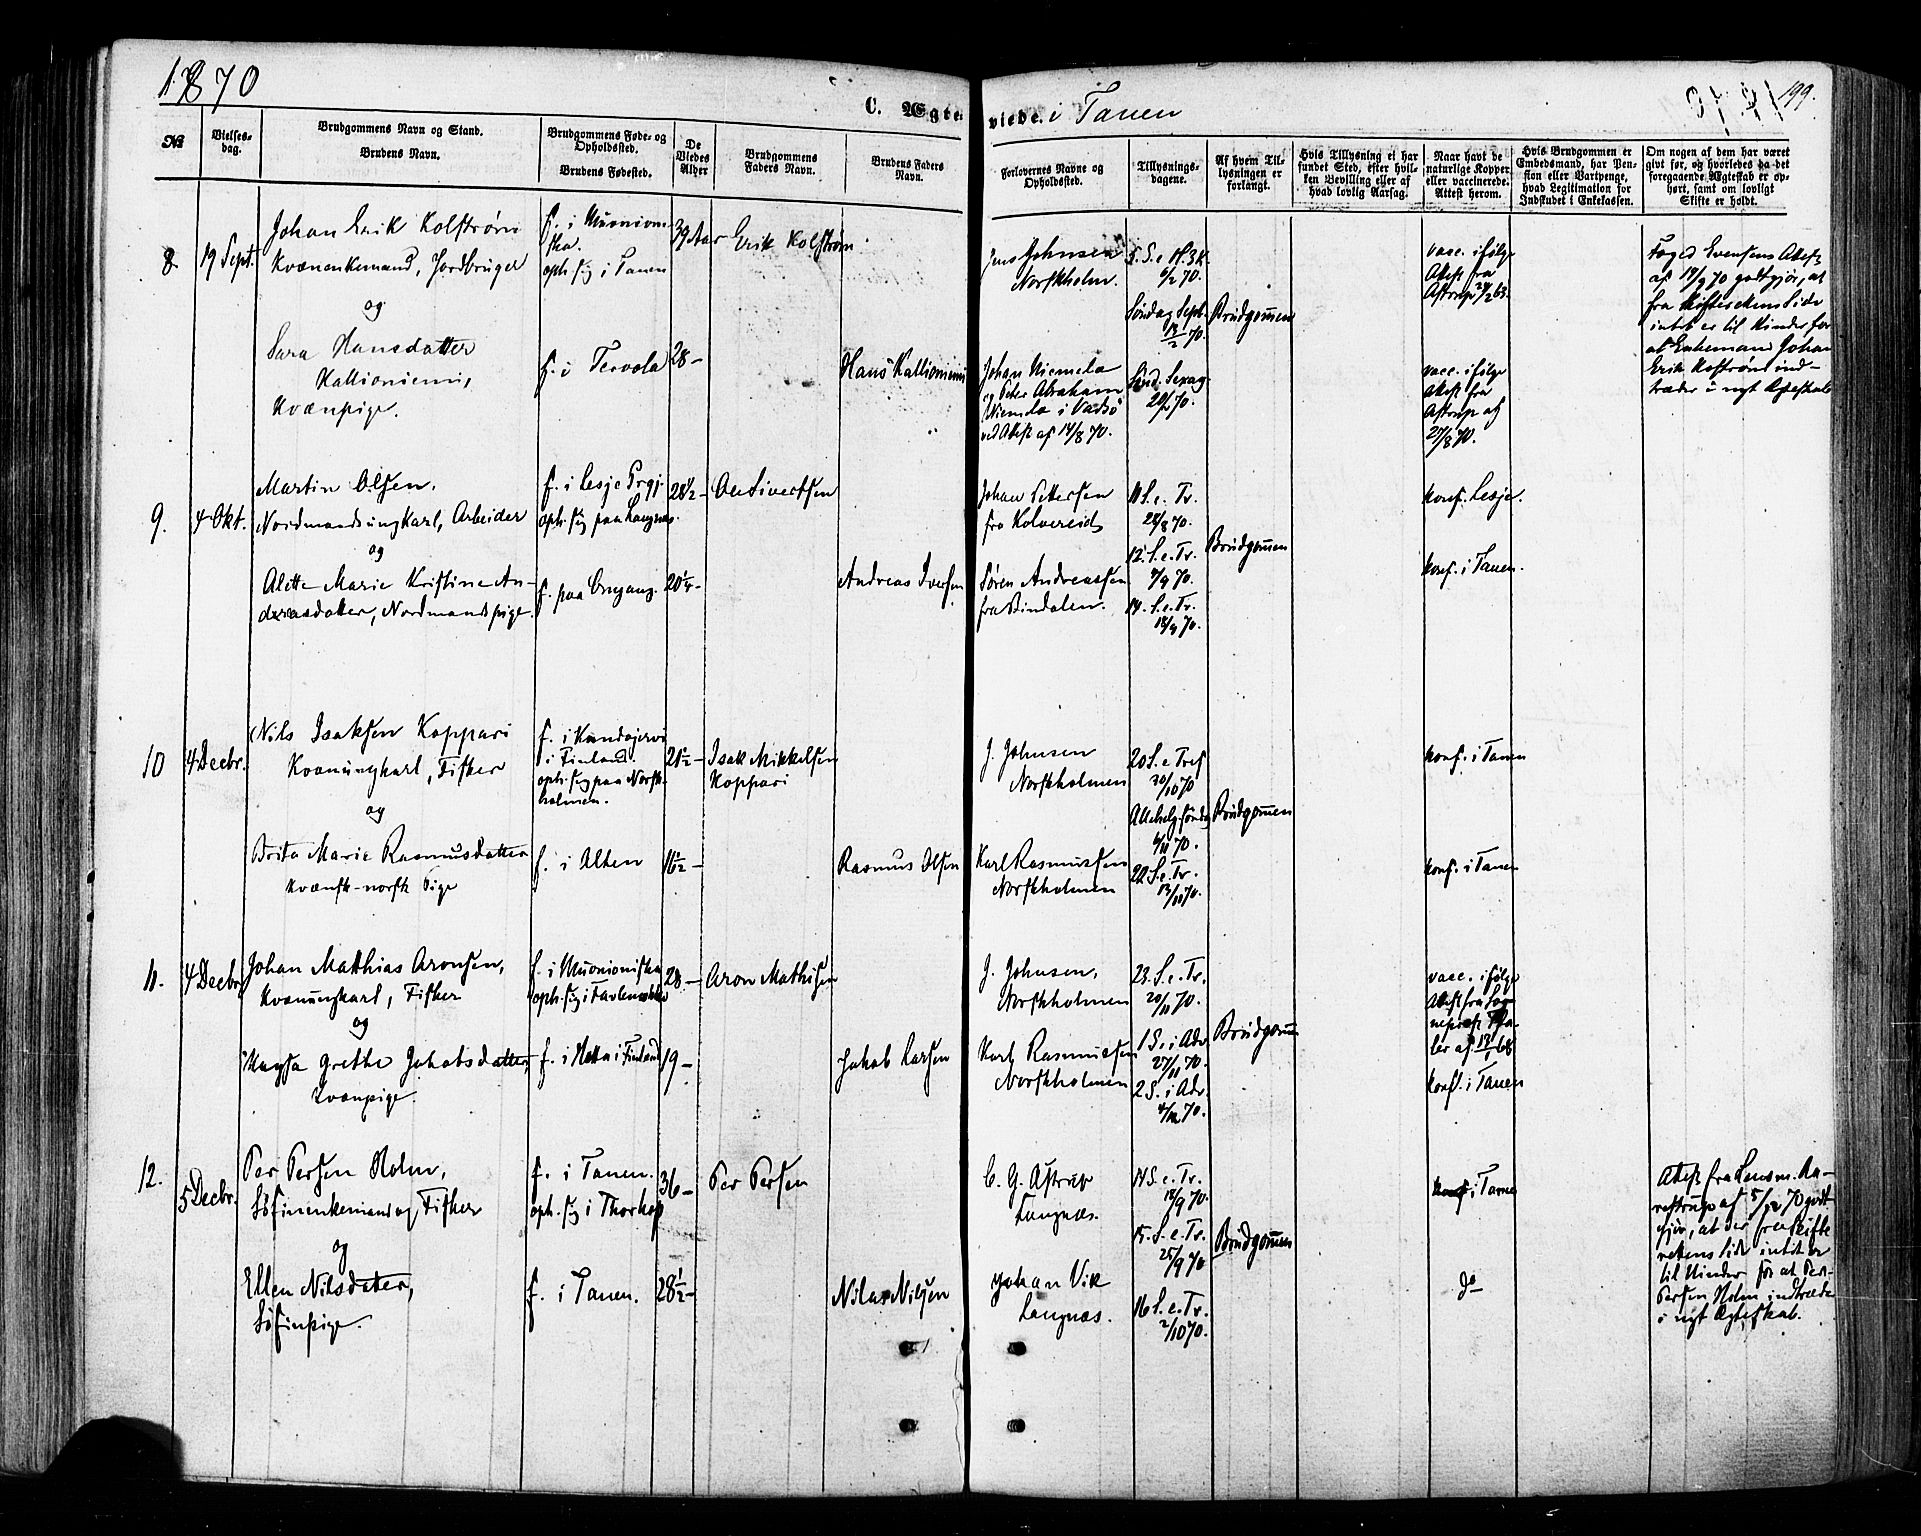 1870
C. Ægte-
viede i Tanen
199.
No
Vielses-
dag.
Brudgommens Navn og Stand.
Brudens Navn.
Brudgommens Føde- og
Opholdssted.
Brudens Fødested.
De
Viedes
Alder
Brudgommens
Faders Navn.
Brudens Faders
Navn.
Forlovernes Navne og
Opholdssted.
Tillysnings-
dagene.
Af hvem Til-
lysningen er
forlangt.
Hvis Tillysning ei har
fundet Sted, efter hvil-
ken Bevilling eller af
hvad lovlig Aarsag.
Naar havt de
naturlige Kopper
eller vaccinerede.
Attest herom.
Hvis Brudgommen er
Embedsmand, har Pen-
sion eller Vartpenge,
hvad Legitimation for
Indskudet i Enkekassen.
Om nogen af dem har været
givt før, og hvorledes da det
foregaaende Ægteskab er op-
hørt, samt om lovligt
Skifte er holdt.
8.
19 Sept.
Johan Erik Kolstrøm
Kvænenkemand, Jordbruger
og
Sara Hansdatter
Kallioniemi,
Kvænpige.
f. i Muonioni-
ska.
oph. sig i Tanen
f. i Tervola
39 Aar
28 –
Erik Kolstrøm
Hans Kallioniemi
Jens Johnsen
Norskholm.
Johan Niemela
og Peter Abraham
Niemela i Vadsø
ved Attest af 14/8 70.
5. S. e. H. 3 K.
6/2 70.
Søndag Sept.
13/2 70.
Sønd. Sexag.
20/2 70.
Brudgommen
vacc. ifølge
Attest fra
Astrup 24/2 63.
vacc. ifølge
Attest fra
Astrup af
27/8 70.
Foged Evensens Attest
af 14/9 70 godtgjør, at
fra Skifterettens Side
intet er til Hinder for
at Enkemand Johan
Erik Kolstrøm ind-
træder i nyt Ægteskab
9.
4 Okt.
Martin Olsen,
Nordmandsungkarl, Arbeider
og
Alette Marie Kristine An-
dreasdatter, Nordmandspige.
f. i Lesje Prgj.
oph. sig paa Langnæs.
f. paa Gregang.
28½ –
20¼ –
Ole Sivertsen
Andreas Iversen
Johan Pettersen
fra Kolvereid
Søren Andreassen
fra Bindalen.
11 S. e. Tr.
28/8 70.
12. S. e. Tr.
4/9 70.
14. S. e. Tr.
18/9 70.
Brudgommen
konf. Lesje.
konf. i Tanen.
10
4 Decbr.
Nils Isaksen Koppari
Kvænungkarl, Fisker
og
Brita Marie Rasmusdatter
kvænsk-norsk Pige
f. i
i Finland.
oph. sig paa Norsk-
holmen.
f. i Alten
21½ –
Isak Mikkelsen
Koppari
Rasmus Olsen
J. Johnsen
Norskholmen
Karl Rasmussen
Norskholmen
20 S. e. Tref
30/10 70
Allehelg. søndag
6/11 70.
22. S. e. Tr.
13/11 70.
Brudgommen
konf. i Tanen
konf. i Tanen
11.
4 Decbr.
Johan Matthias Aronsen,
Kvænungkarl, Fisker
og
Magga Grethe Jakobsdatter,
Kvænpige.
f. i Muonioniska
oph. sig i
f. i Hetta i Finland
28. –
19 –
Aron Mathisen
Jakob Larsen
J. Johnsen,
Norskholmen
Karl Rasmussen
Norskholmen
23. S. e. Tr.
20/11 70.
1 S. i Adv
27/11 70.
2 S. i Adv.
4/12 70.
Brudgommen
vacc. ifølge
Attest fra Sog-
neprest
af 13/1 68
konf. i Tanen
12.
5 Decbr.
Per Persen Holm,
Søfinenkemand og Fisker
og
Ellen Nilsdatter,
Søfinpige.
f. i Tanen.
oph. sig i Thorhop
f. i Tanen.
36 –
28½ –
Per Persen
Nilas Nilsen
C. G. Astrup
Langnæs.
Johan Vik
Langnæs.
14 S. e. Tr.
18/9 70.
15. S. e. Tr.
25/9 70
16 S. e. Tr.
2/10 70.
Brudgommen
konf i Tanen
do
Attest fra Lensm. Aa-
restrup af 5/12 70 godt
gjør, at der fra Skifte
rettens Side intet er
til Hinder for at Per
Persen Holm indtræde
i nyt Ægteskab.